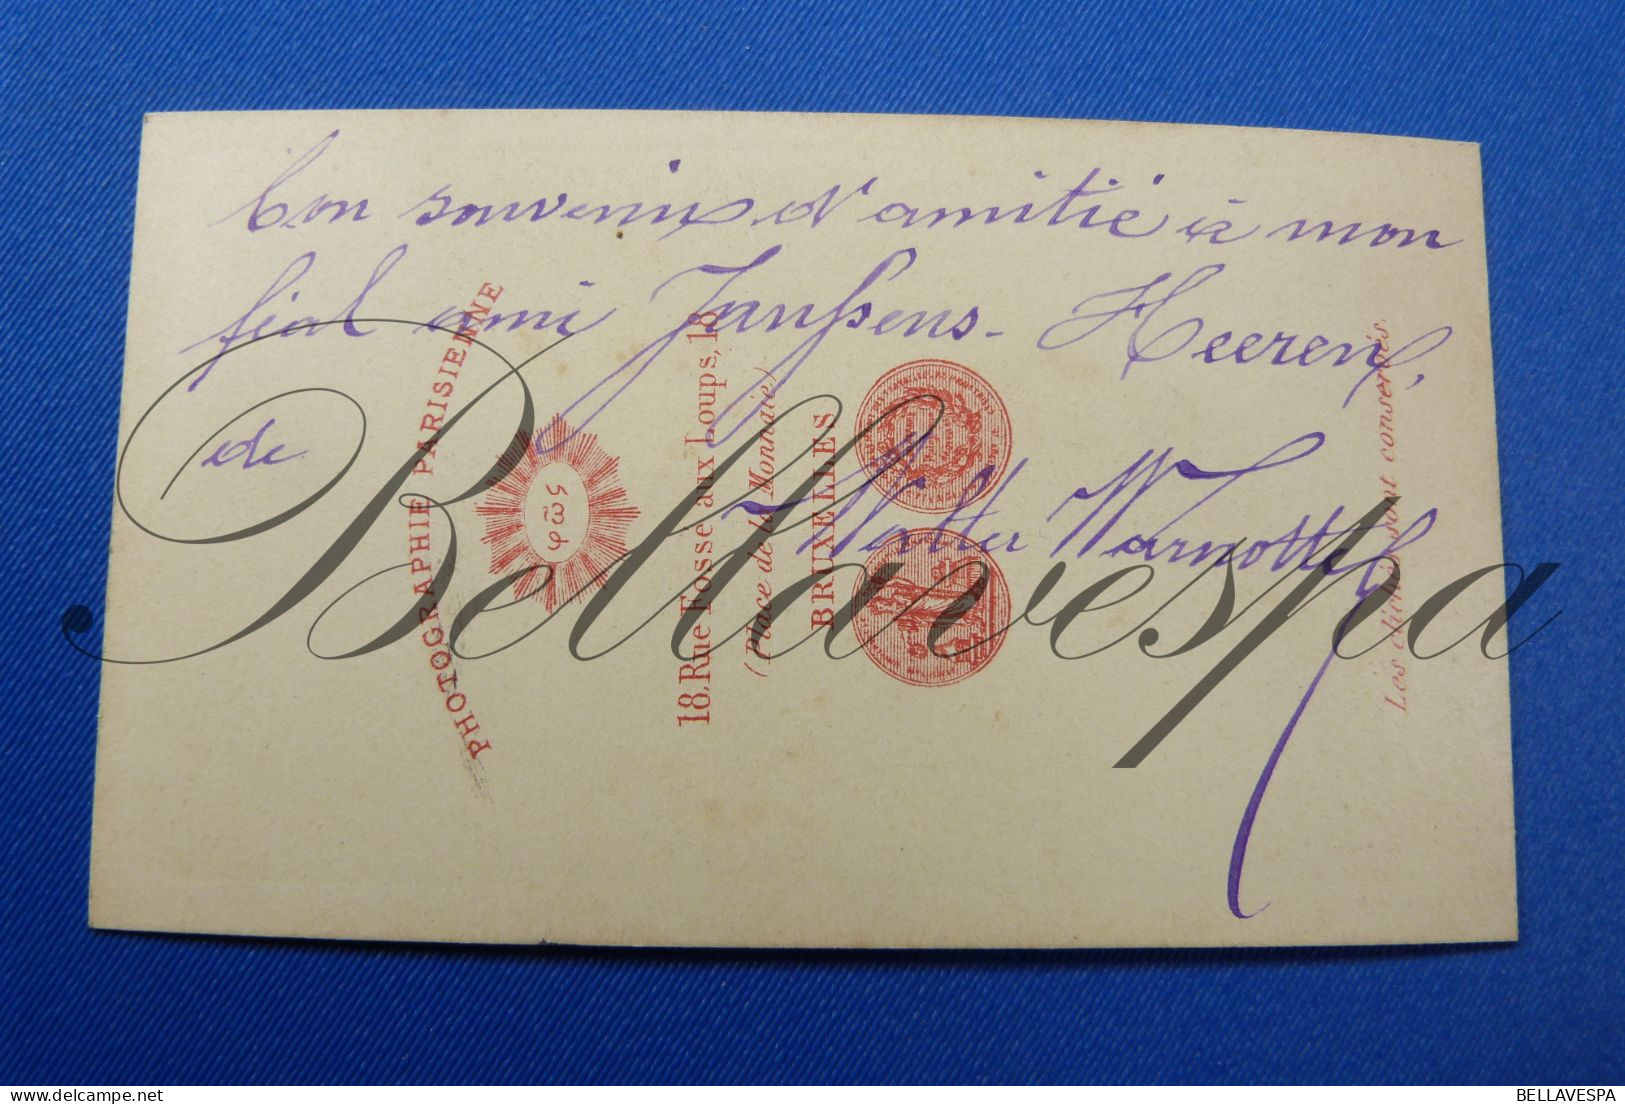 Bon souvenir d'amitié à mon
féal ami Janssens-Heeren,
de
Walter Warnotte
PHOTOGRAPHIE PARISIENNE
18, Rue Fossé aux Loups, 18
(Place de la Monnaie)
BRUXELLES
Les clichés sont conservés.
Bellavespa
BELLAVESPA